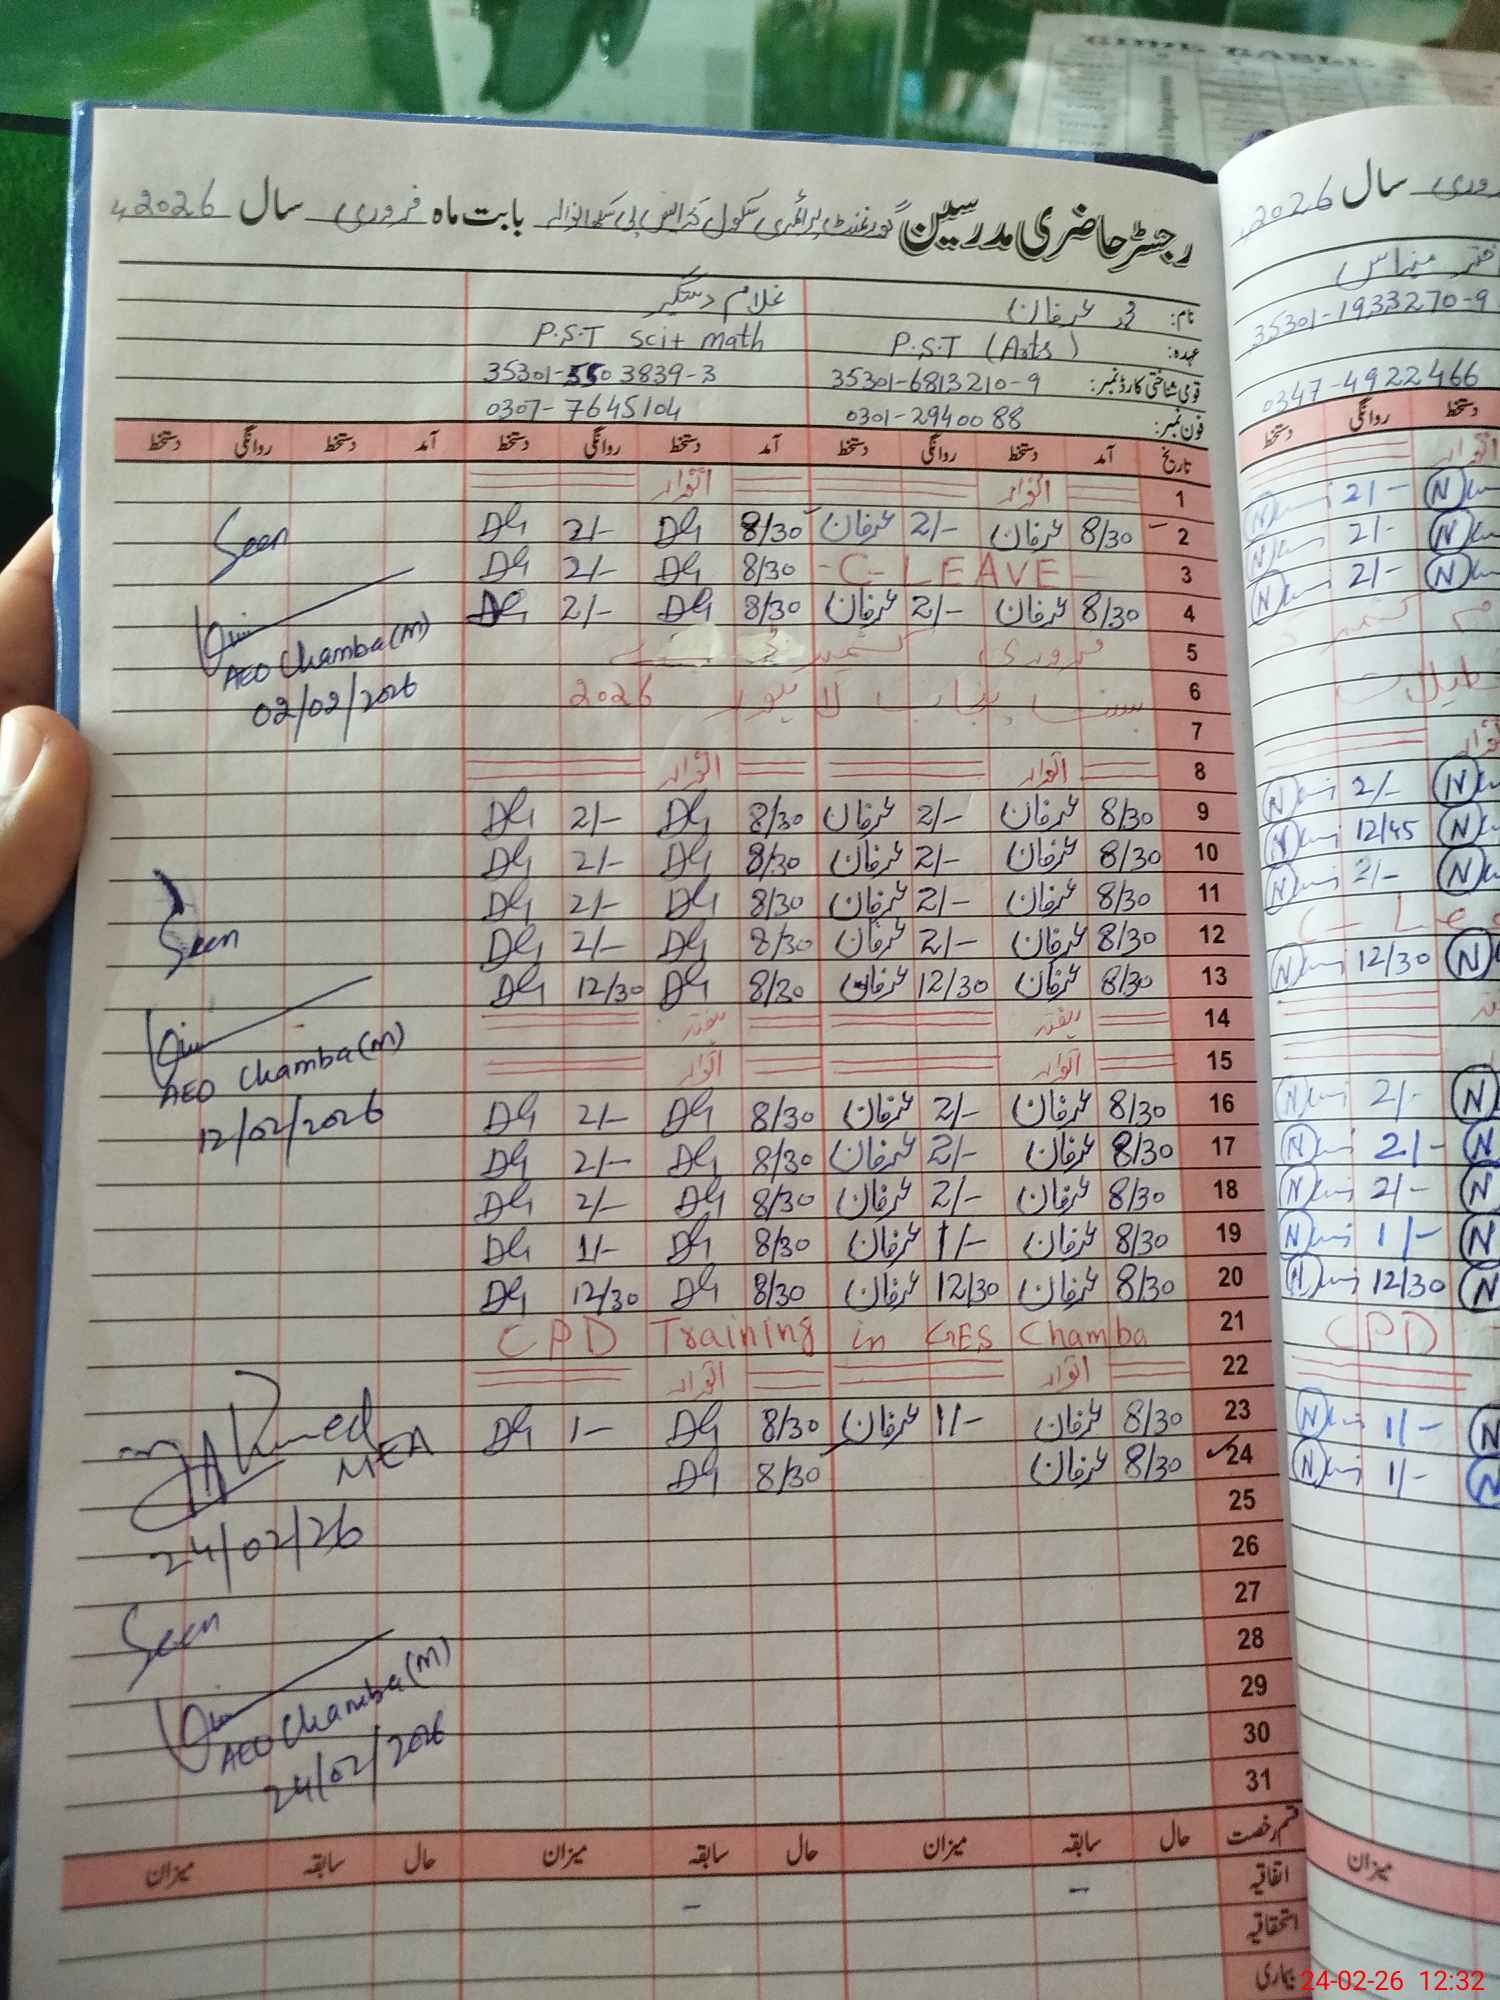 TIME TABLE
رجسٹر حاضری مدرسین گورنمنٹ پرائمری سکول بابت ماہ فروری سال 2026ء
نام: محمد عرفان غلام دستگیر
عہدہ: P.S.T (Arts) P.S.T Sci+ math
قومی شناختی کارڈ نمبر: 35301-6813210-9 35301-5503839-3
فون نمبر: 0301-2940088 0307-7645104
تاریخ آمد دستخط روانگی دستخط آمد دستخط روانگی دستخط آمد دستخط روانگی دستخط
1 اتوار اتوار
2 8/30 عرفان 2/- عرفان 8/30 DG 2/- DG
3 -C-LEAVE- 8/30 DG 2/- DG
4 8/30 عرفان 2/- عرفان 8/30 DG 2/- DG
5 فروری کشمیر
6 بسنت پنجاب لاہور 2026
7
8 اتوار اتوار
9 8/30 عرفان 2/- عرفان 8/30 DG 2/- DG
10 8/30 عرفان 2/- عرفان 8/30 DG 2/- DG
11 8/30 عرفان 2/- عرفان 8/30 DG 2/- DG
12 8/30 عرفان 2/- عرفان 8/30 DG 2/- DG
13 8/30 عرفان 12/30 عرفان 8/30 DG 12/30 DG
14 ہفتہ ہفتہ
15 اتوار اتوار
16 8/30 عرفان 2/- عرفان 8/30 DG 2/- DG
17 8/30 عرفان 2/- عرفان 8/30 DG 2/- DG
18 8/30 عرفان 2/- عرفان 8/30 DG 2/- DG
19 8/30 عرفان 1/- عرفان 8/30 DG 1/- DG
20 8/30 عرفان 12/30 عرفان 8/30 DG 12/30 DG
21 CPD Training in GES Chamba
22 اتوار اتوار
23 8/30 عرفان 1/- عرفان 8/30 DG 1- DG
24 8/30 عرفان 8/30 DG
25
26
27
28
29
30
31
قسم رخصت حال سابقہ میزان حال سابقہ میزان حال سابقہ میزان
اتفاقیہ - -
استحقاقیہ
بیماری
Seen
AEO Chamba(M)
02/02/2026
Seen
AEO Chamba(M)
12/02/2026
Ahmed
MEA
24/02/26
Seen
AEO Chamba(M)
24/02/2026
سال 2026ء
35301-1933270-9
0347-4922466
دستخط روانگی دستخط
اتوار
N 2/- N
N 2/- N
N 2/- N
N 2/- N
N 12/45 N
N 2/- N
C-Lea
N 12/30 N
N 2/- N
N 2/- N
N 2/- N
N 1/- N
N 12/30 N
CPD
N 1/- N
N 1/- N
میزان
24-02-26 12:32